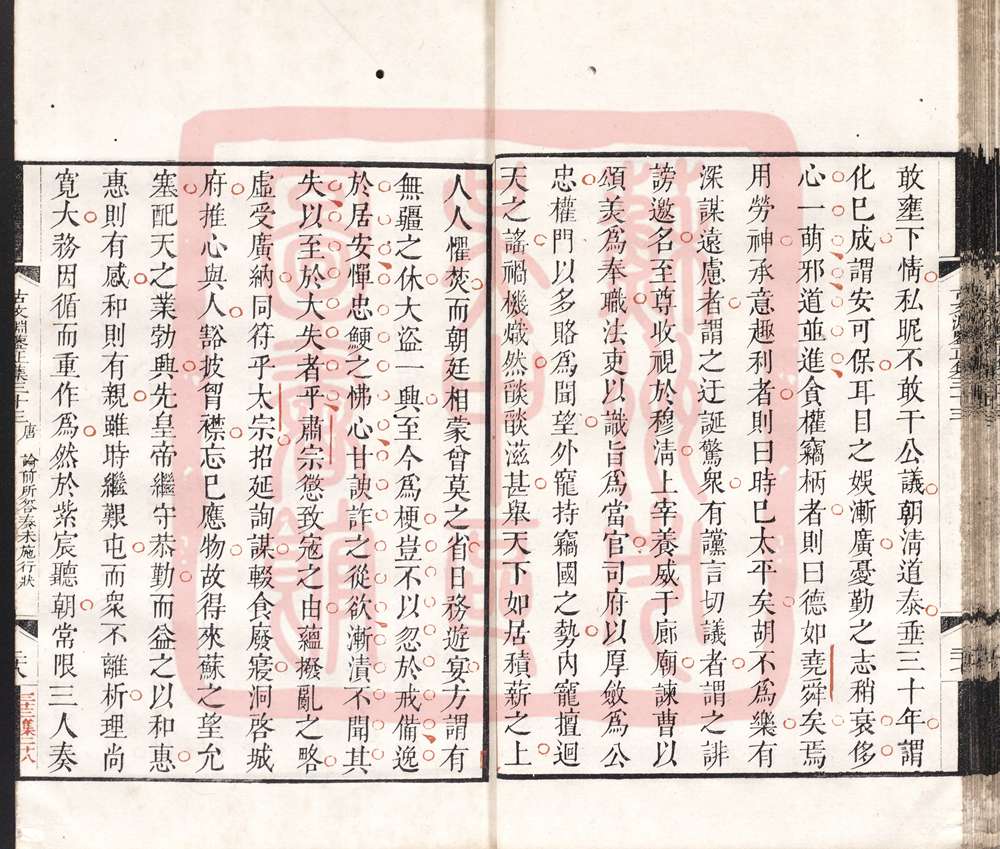 敢壅下情私昵不敢干公議朝淸道泰垂三十年謂
化巳成謂安可保耳目之娛漸廣憂勤之志稍衰侈
心一萌邪道並進貪權竊柄者則曰德如堯舜矣焉
用勞神承意趣利者則曰時巳太平矣胡不爲樂有
深謀遠慮者謂之迂誕驚衆有讜言切議者謂之誹
謗邀名至尊收視於穆淸上宰養威于廊廟諫曹以
頌美爲奉職法吏以識旨爲當官司府以厚斂爲公
忠權門以多賂爲聞望外寵持竊國之勢內寵擅迴
天之謠禍機熾然燄燄滋甚舉天下如居積薪之上
人人懼焚而朝廷相蒙曾莫之省日務遊宴方謂有
無疆之休大盜一興至今爲梗豈不以忽於戒備逸
於居安憚忠鯁之怫心甘諛詐之從欲漸漬不聞其
失以至於大失者乎肅宗懲致寇之由蘊撥亂之略
虛受廣納同符乎太宗招延詢謀輟食廢寢洞啓城
府推心與人豁披胷襟忘巳應物故得來蘇之望允
塞配天之業勃興先皇帝繼守恭勤而益之以和惠
惠則有感和則有親雖時繼艱屯而衆不離析理尚
寬大務因循而重作爲然於紫宸聽朝常限三人奏
古文淵鑒正集三十三
唐
論前所答奏未施行狀
三十三集二十八